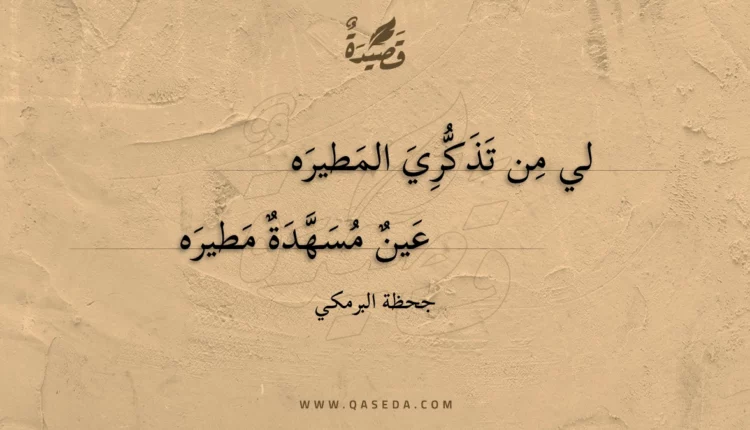 قَصِيدَةٌ
لي مِن تَذَكُّرِيَ المَطيرَه
عَينٌ مُسَهَّدَةٌ مَطيرَه
جحظة البرمكي
WWW.QASEDA.COM